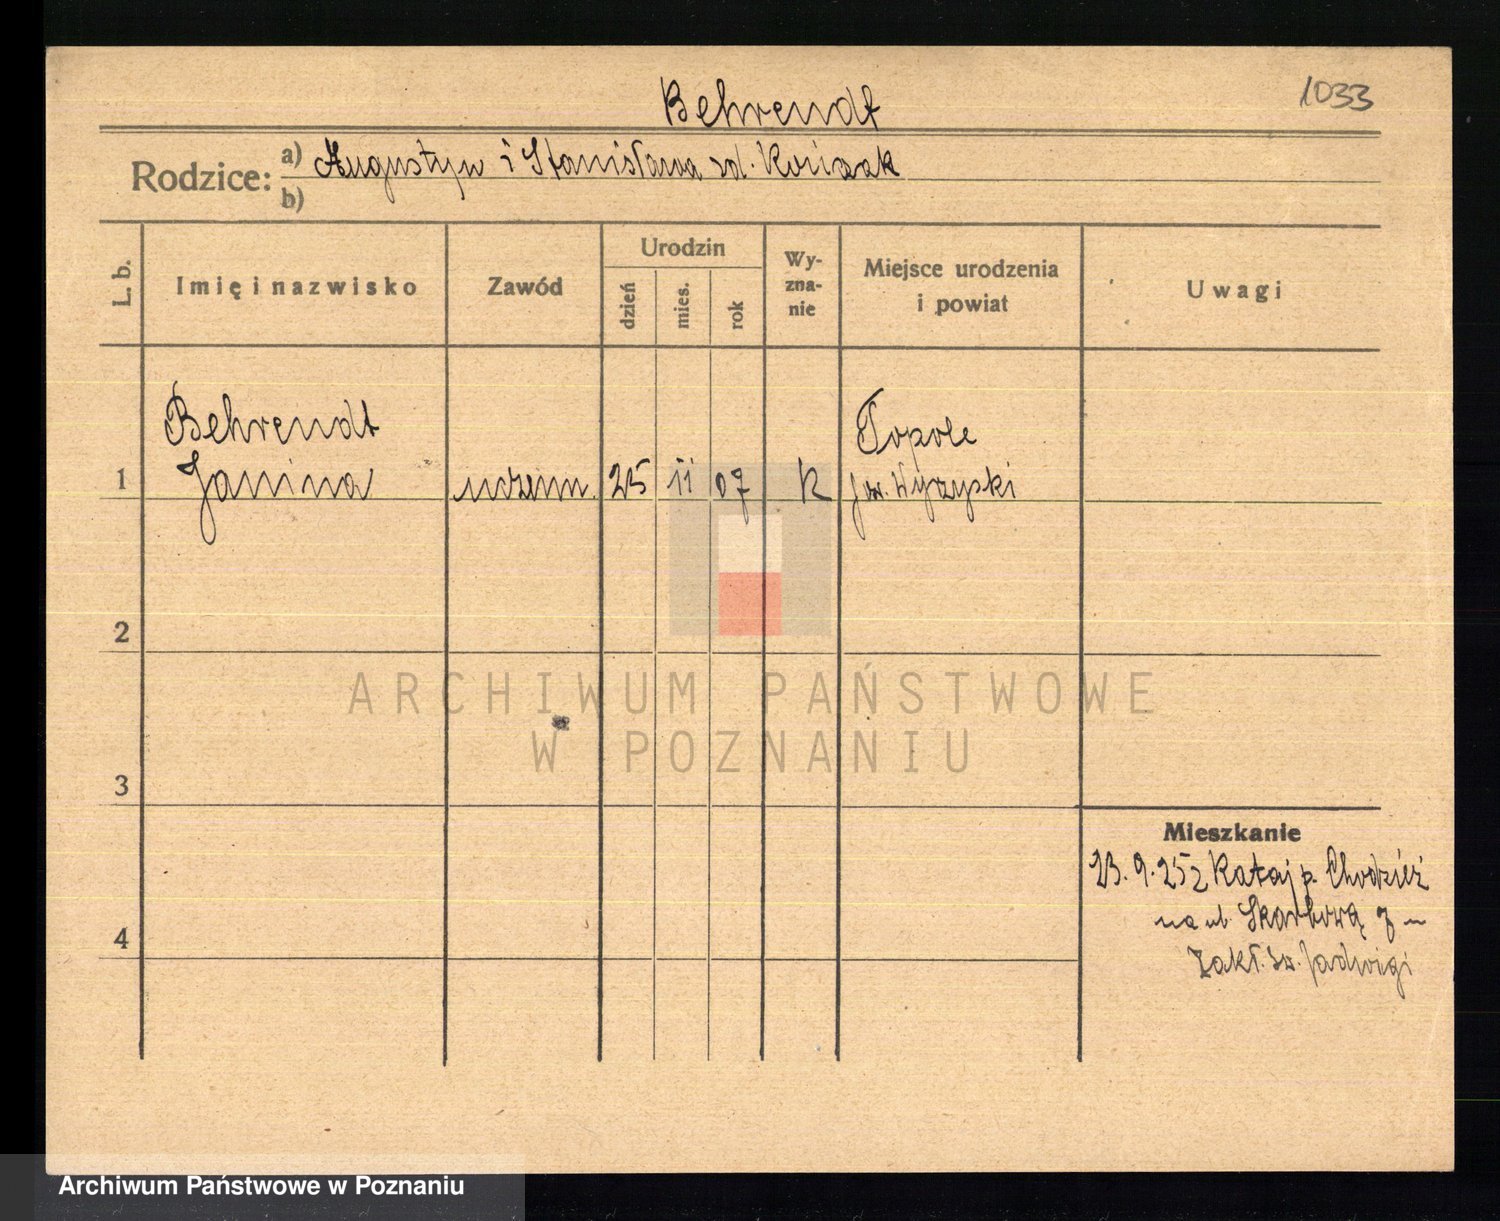 Behrendt
1033
Rodzice:
a) Augustyn i Stanisława zd. Kończak
b)
L. b.
Imię i nazwisko
Zawód
Urodzin
dzień
mies.
rok
Wy-
zna-
nie
Miejsce urodzenia
i powiat
Uwagi
Behrendt
Janina
1
uczenn.
25
11
07
K
Topole
pow. Wyrzyski
2
ARCHIWUM PAŃSTWOWE
W POZNANIU
3
Mieszkanie
23. 9. 25 z Rataj p. Chodzież
na ul. Skarbową
4
Zakł. Św. Jadwigi
Archiwum Państwowe w Poznaniu